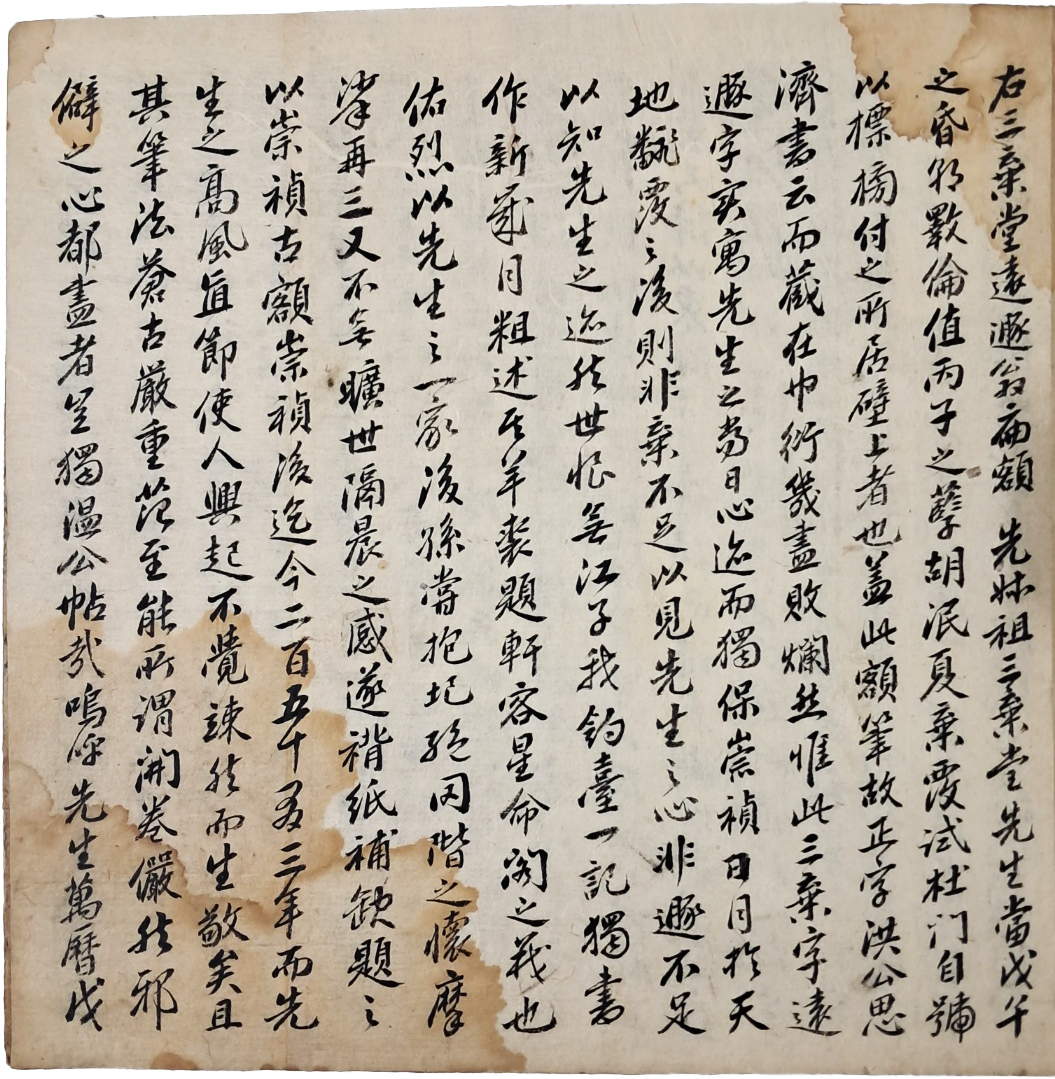 右三棄堂遠遯翁扁額 先妹祖三棄堂先生當戊午
之昏朝斁倫值丙子之孽胡泯夏棄覆試杜门自號
以標牓付之所居壁上者也盖此額筆故正字洪公思
濟書云而蔵在巾衍幾盡敗爛然惟此三棄字遠
遯字实寓先生之當日心迹而獨保崇禎日月於天
地飜覆之後則非棄不足以見先生之心非遯不足
以知先生之迹然世恨無江子我釣臺一記獨書
作新莽月粗述其羊裘題軒客星命阁之義也
佑烈以先生之一家後孫嘗抱圮绝冈階之懷摩
挲再三又不無曠世隔晨之感遂褙紙補缺題之
以崇禎古額崇禎後迄今二百五十有三年而先
生之高風直節使人興起不覺竦然而生敬矣且
其筆法蒼古嚴重范至能所謂開卷儼然邪
僻之心都盡者豈獨温公帖哉嗚呼先生萬曆戊